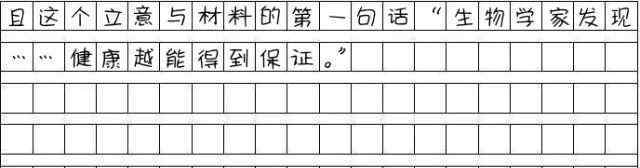 且这个立意与材料的第一句话“生物学家发现
……健康越能得到保证。”